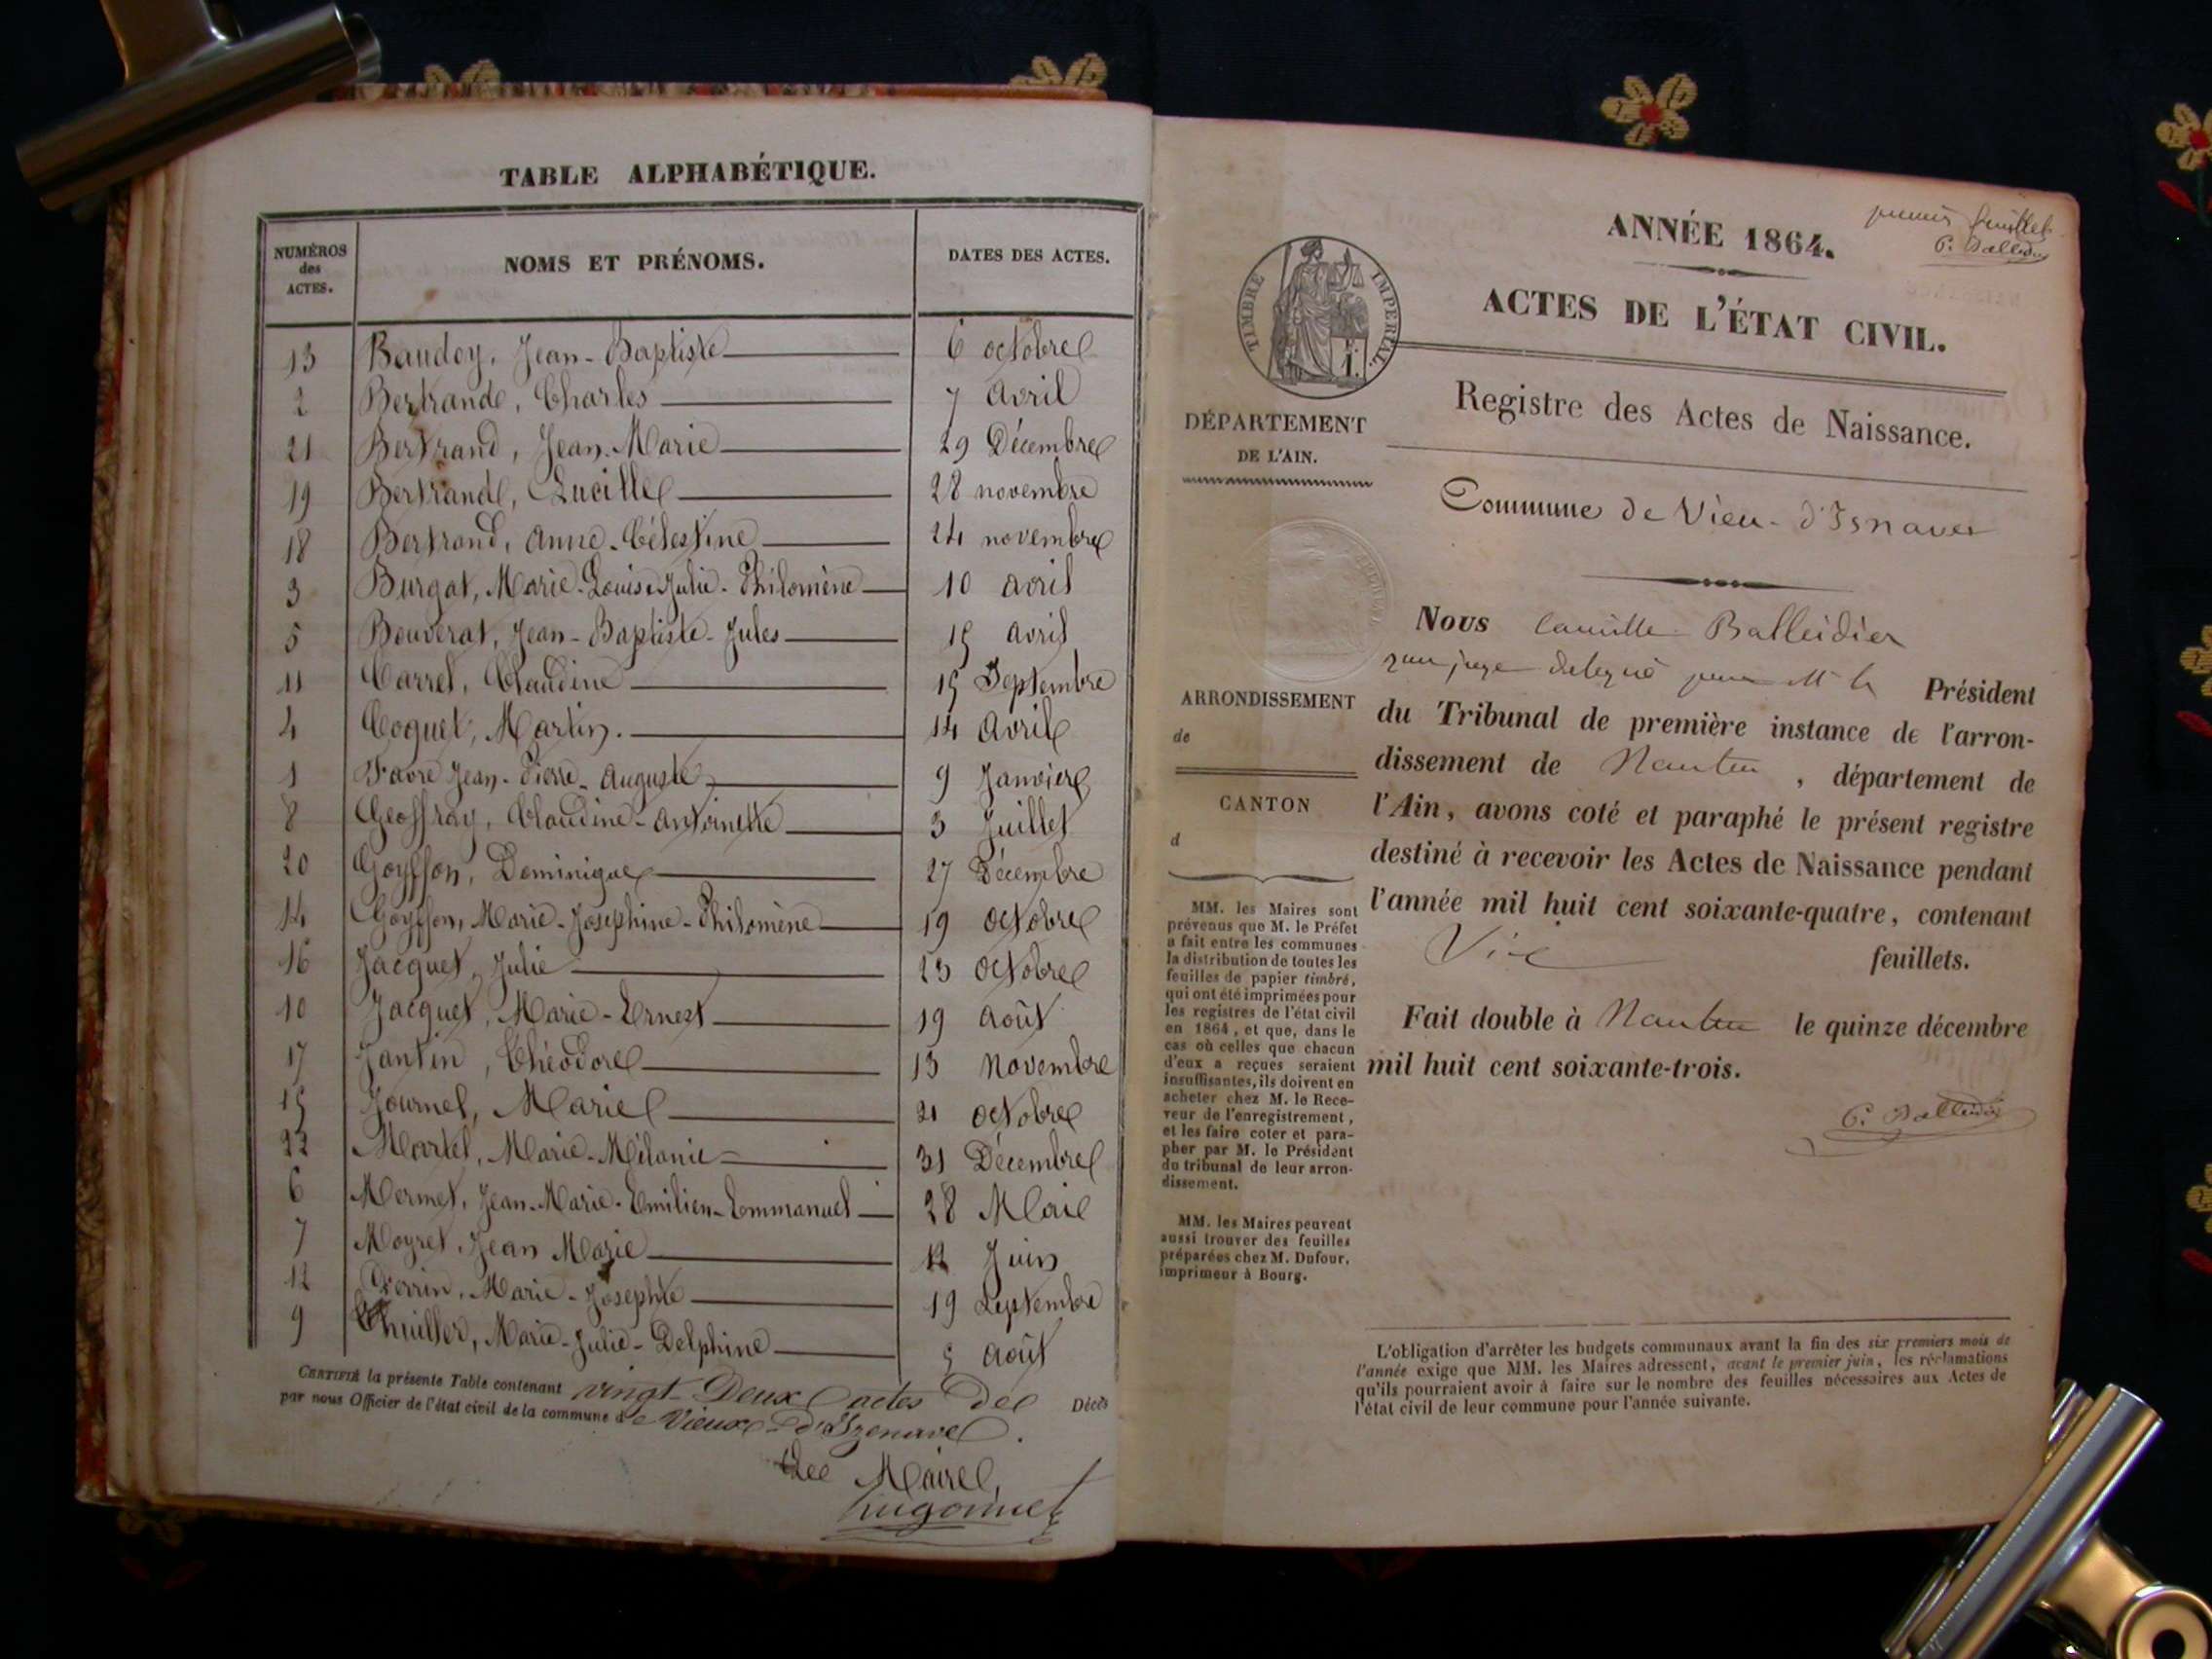 TABLE ALPHABÉTIQUE.
NUMÉROS des ACTES. NOMS ET PRÉNOMS. DATES DES ACTES.
13 Baudoy, Jean-Baptiste 6 octobre
2 Bertrand, Charles 7 avril
21 Bertrand, Jean-Marie 29 Décembre
19 Bertrand, Lucille 28 novembre
18 Bertrand, Anne-Célestine 24 novembre
3 Burgat, Marie-Louise-Julie-Philomène 10 avril
5 Bouverat, Jean-Baptiste-Jules 15 avril
11 Carrel, Claudine 15 Septembre
4 Coquet, Martin. 14 avril
1 Favre Jean-Pierre-Auguste 9 Janvier
8 Geoffray, Claudine-Antoinette 3 Juillet
20 Goyffon, Dominique 27 Décembre
14 Goyffon, Marie-Josephine-Philomène 19 octobre
16 Jacquet, Julie 23 octobre
10 Jacquet, Marie-Ernest 19 août
17 Jantin, Théodore 13 novembre
15 Journel, Marie 21 octobre
22 Martel, Marie-Mélanie 31 Décembre
6 Mermet, Jean-Marie-Emilien-Emmanuel 28 Mai
7 Moyret, Jean Marie 12 Juin
12 Perrin, Marie-Josephte 19 Septembre
9 Thuiller, Marie-Julie-Delphine 5 août
CERTIFIÉ la présente Table contenant vingt-Deux actes De Décès
par nous Officier de l'état civil de la commune de Vieux-d'Izenave.
Le Maire,
hugonnet
premier feuillet
C. Balleidier
ANNÉE 1864.
ACTES DE L'ÉTAT CIVIL.
TIMBRE IMPÉRIAL.
Registre des Actes de Naissance.
DÉPARTEMENT
DE L'AIN.
Commune de Vieu-d'Isnave
Nous Camille Balleidier
juge délégué par M le Président
du Tribunal de première instance de l'arron-
dissement de Nantua, département de
l'Ain, avons coté et paraphé le présent registre
destiné à recevoir les Actes de Naissance pendant
l'année mil huit cent soixante-quatre, contenant
feuillets.
Fait double à Nantua le quinze décembre
mil huit cent soixante-trois.
C. Balleidier
ARRONDISSEMENT
de
CANTON
d
MM. les Maires sont
prévenus que M. le Préfet
a fait entre les communes
la distribution de toutes les
feuilles de papier timbré,
qui ont été imprimées pour
les registres de l'état civil
en 1864, et que, dans le
cas où celles que chacun
d'eux a reçues seraient
insuffisantes, ils doivent en
acheter chez M. le Rece-
veur de l'enregistrement,
et les faire coter et para-
pher par M. le Président
du tribunal de leur arron-
dissement.
MM. les Maires peuvent
aussi trouver des feuilles
préparées chez M. Dufour,
imprimeur à Bourg.
L'obligation d'arrêter les budgets communaux avant la fin des six premiers mois de
l'année exige que MM. les Maires adressent, avant le premier juin, les réclamations
qu'ils pourraient avoir à faire sur le nombre des feuilles nécessaires aux Actes de
l'état civil de leur commune pour l'année suivante.